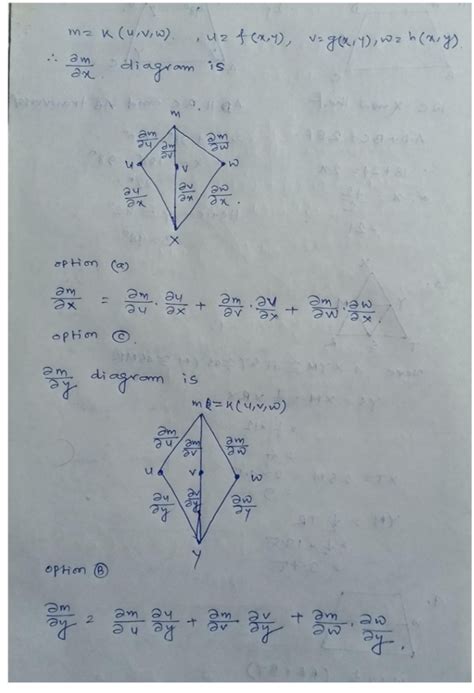 m = k(u,v,w). , u = f(x,y), v = g(x,y), w = h(x,y)
∴ ∂m/∂x diagram is
m
∂m/∂u ∂m/∂v ∂m/∂w
u v w
∂u/∂x ∂v/∂x ∂w/∂x.
x
option (a)
∂m/∂x = ∂m/∂u . ∂u/∂x + ∂m/∂v . ∂v/∂x + ∂m/∂w . ∂w/∂x.
option ©.
∂m/∂y diagram is
m = k(u,v,w)
∂m/∂u ∂m/∂v ∂m/∂w
u v w
∂u/∂y ∂v/∂y ∂w/∂y
y
option Ⓑ
∂m/∂y = ∂m/∂u ∂u/∂y + ∂m/∂v ∂v/∂y + ∂m/∂w . ∂w/∂y.